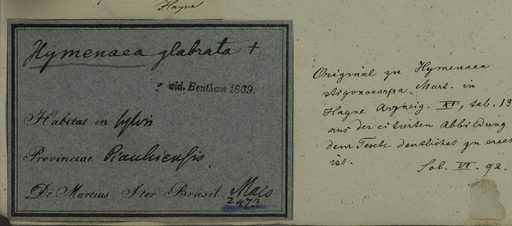 Hayne
Hymenaea glabrata +
? vid. Bentham 1869.
Habitat in sylvis
Provinciae Piauhiensis
Dr Martius Iter Brasil. Majo
2473
Original zu Hymenaea
stigonocarpa Mart. in
Hayne Arzneig. XI, tab. 13
aus der citirten Abbildung
dem Texte deutliches zu erse
ist.
VI. 92.